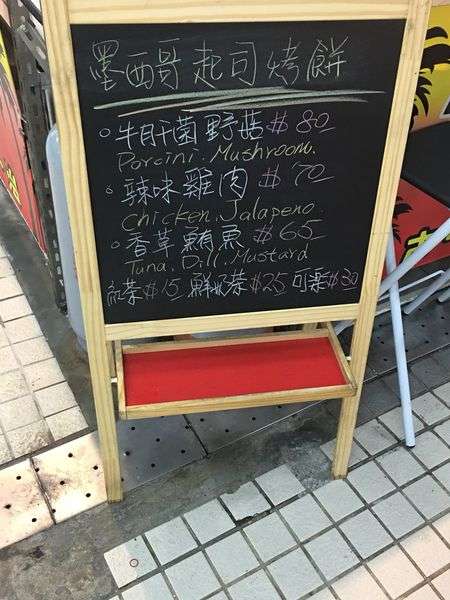 墨西哥起司烤餅
。牛肝菌野菇 $80
Porcini. Mushroom.
。辣味雞肉 $70
Chicken. Jalapeno.
。香草鮪魚 $65
Tuna. Dill. Mustard
紅茶$15 鮮奶茶$25 可樂$30